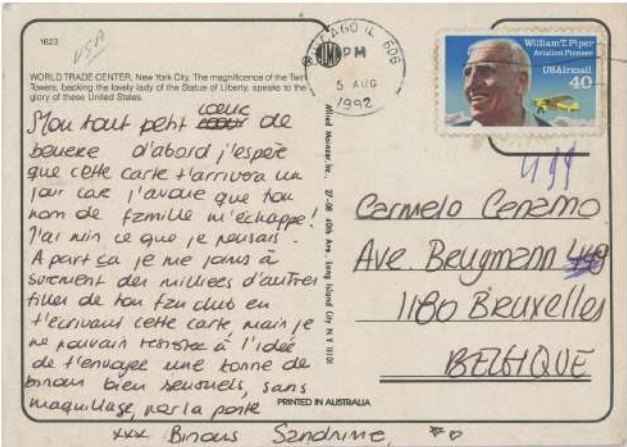 1623
USA
WORLD TRADE CENTER, New York City. The magnificence of the Twin
Towers, backing the lovely lady of the Statue of Liberty, speaks to the
glory of these United States.
Mon tout petit coeur de
beurre d'abord j'espère
que cette carte t'arrivera un
jour car j'avoue que ton
nom de famille m'échappe!
J'ai mis ce que je pensais.
A part ça je me joins à
surement des milliers d'autres
filles de ton fan club en
t'écrivant cette carte, mais je
ne pouvais resister à l'idée
de t'envoyer une tonne de
bisous bien sensuels, sans
maquillage, par la poste
xxx Bisous Sandrine,
PRINTED IN AUSTRALIA
Alfred Mainzer, Inc. 27-08 40th Ave., Long Island City N Y 11101
CHICAGO IL 606
PM
5 AUG
1992
William T. Piper
Aviation Pioneer
USAirmail
40
499
Carmelo Cenamo
Ave. Brugmann
1180 Bruxelles
BELGIQUE